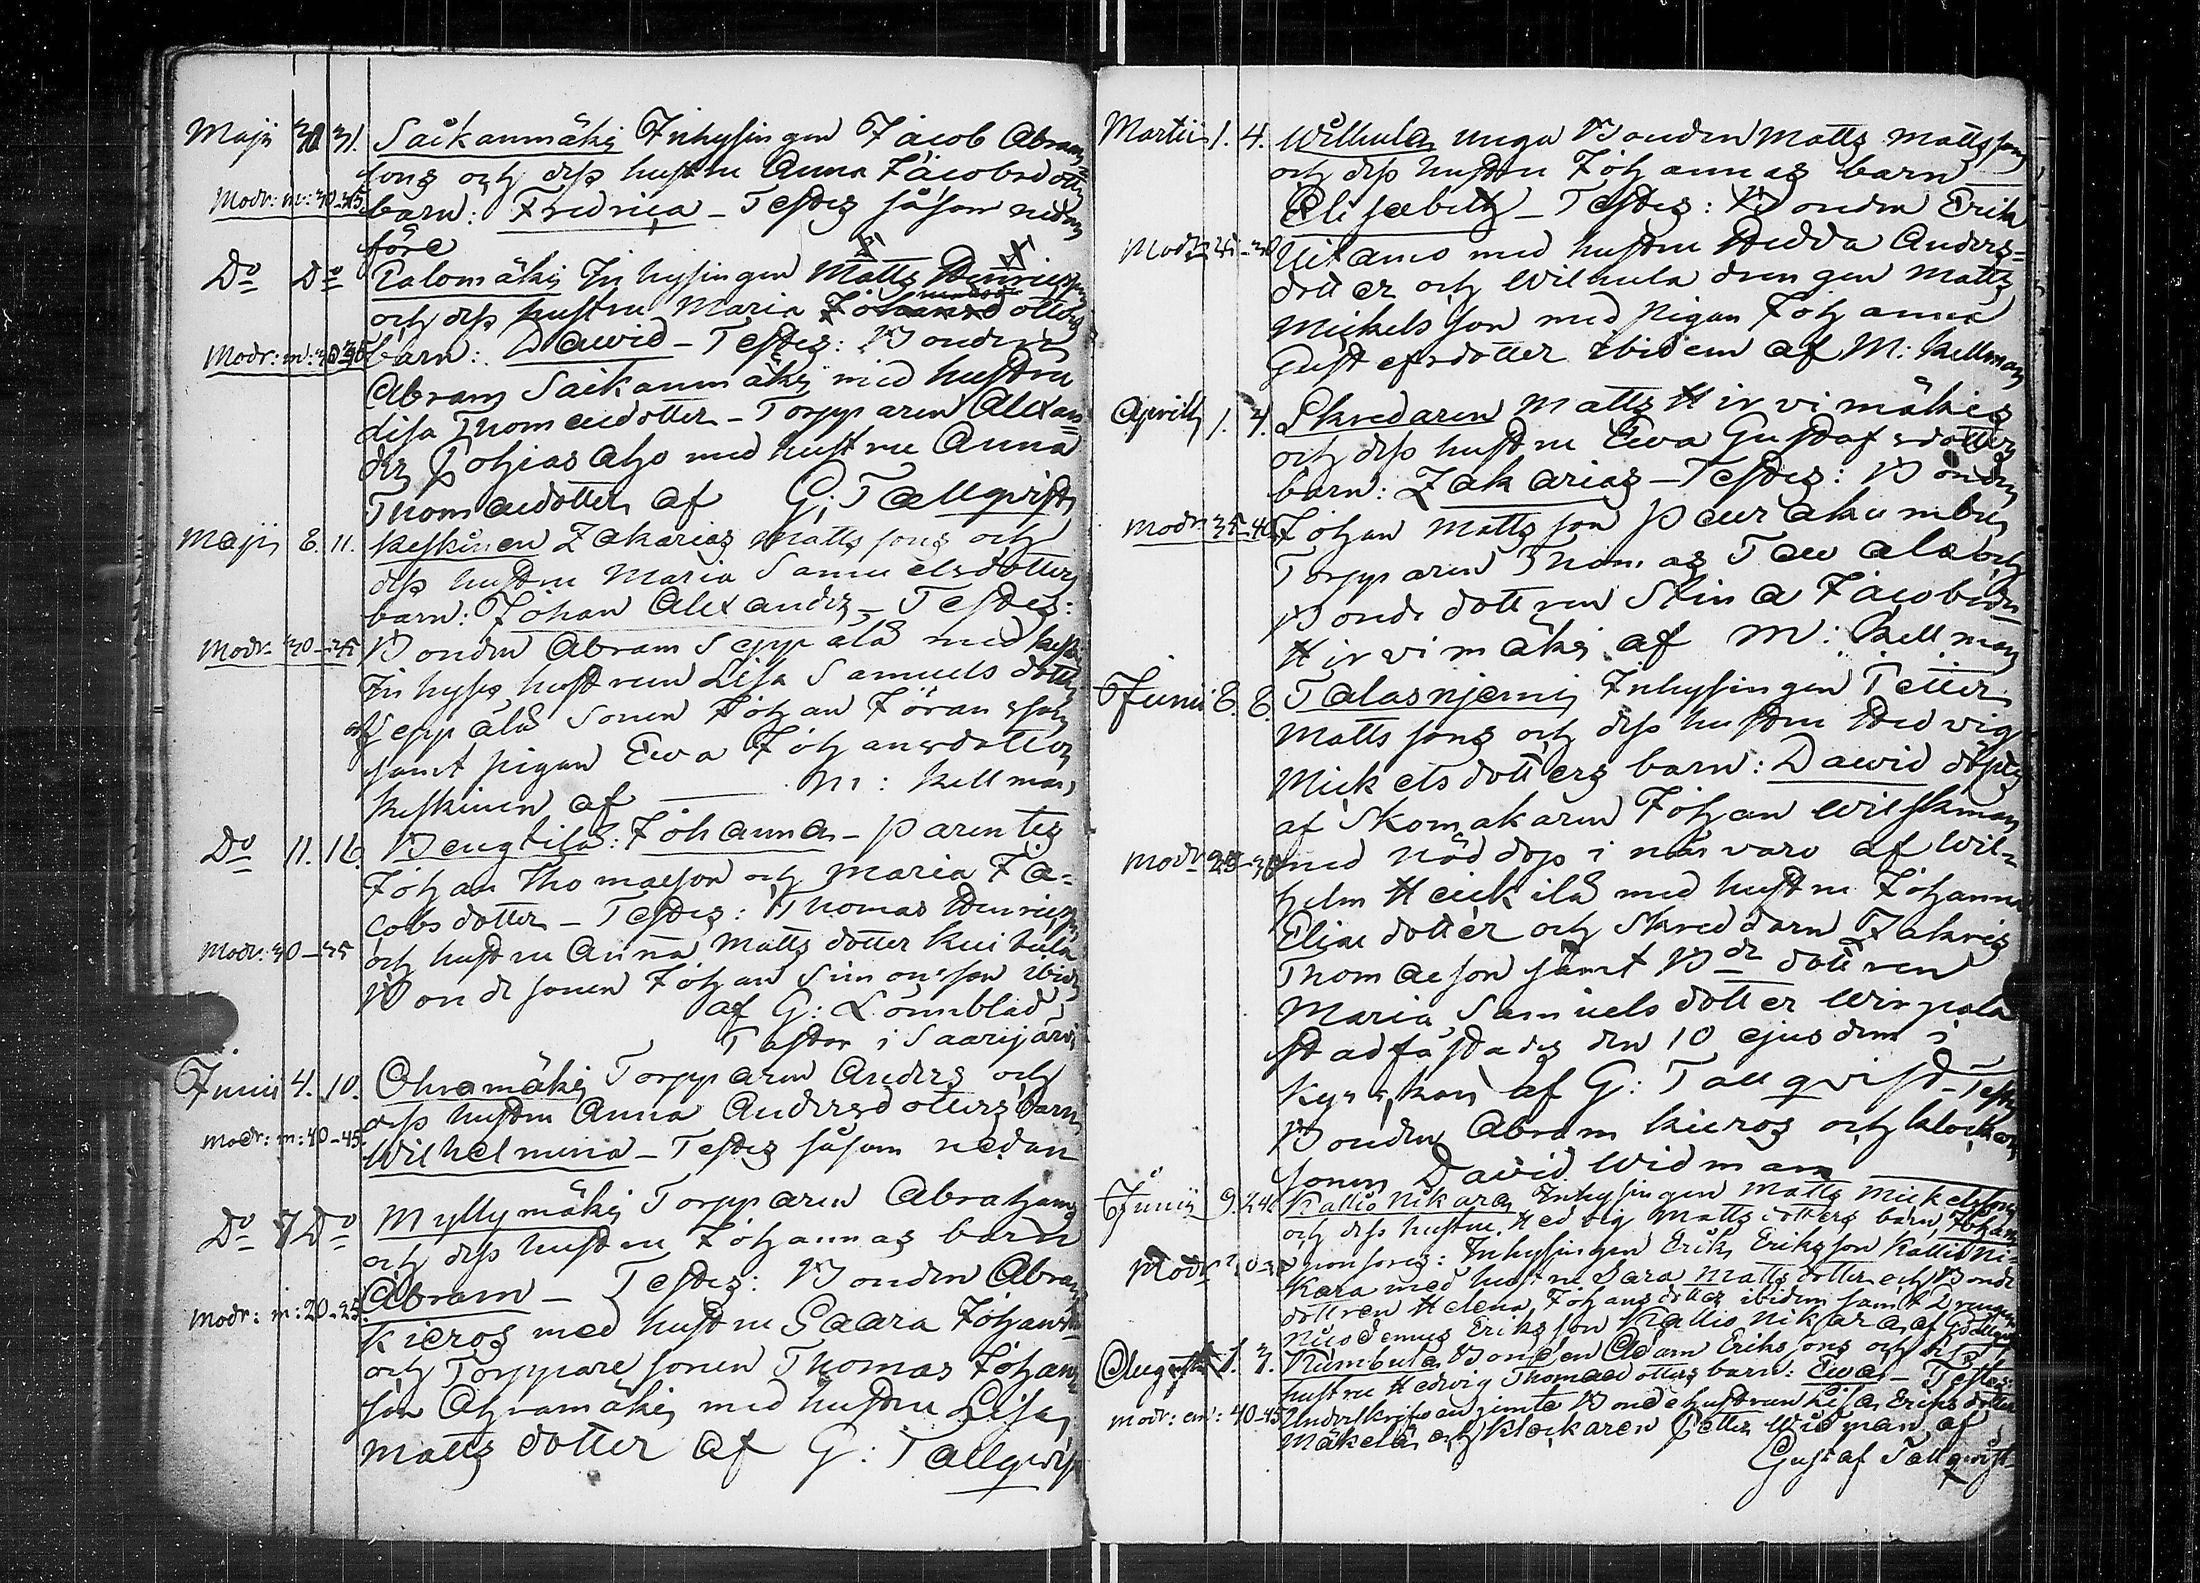 Maji 30 31. Saikanmäki Inhysingen Jacob Abram
sons och dess hustru Anna Jacobsdotters
Modr: m: 30-35 barn: Fredrica - Testes såsom nedan
före
Do Do Palomäki Inhysingen Matts Henricssons
och dess hustru Maria dotters
Modr: m: 30 35 barn: Dawid - Testes: Bonden
Abram Saikanmäki med hustru
Lisa Thomaedotter - Torpparen Alexan=
der Pohjasaho med hustru Anna
Thomaedotter af G: Tallqvist
Maji 8. 11. Keskinen Zakarias Mattssons och
dess hustru Maria Samuelsdotters
barn: Johan Alexander - Testes:
Modr 30-35 Bonden Abram Seppälä med
Inhyses hustrun Lisa Samuelsdotter
Seppälä Sonen Johan Göransson
samt pigan Ewa Johansdotter
Keskinen af M: Kellman
Do 11. 16. Bengtilä: Johanna - Parentes
Johan Thomaeson och Maria Ja=
cobsdotter - Testes: Thomas Henricsson
Modr: 30-35 och hustru Anna Mattsdotter Kuihula
Bonde sonen Johan Simonsson ibid
af G: Lönnblad
Pastor i Saarijärvi
Junii 4. 10. Ohramäki Torpparen Anders och
dess hustru Anna Andersdotters barn
Modr: m: 40-45. Wilhelmina - Testes såsom nedan
Do 7 Do Myllymäki Torpparen Abrahams
och dess hustru Johannas barn
Abram - Testes: Bonden Abram
Modr: m: 20-25. Kieros med hustru Saara Johansd
och Torppare sonen Thomas Johans
son Ohramäki med hustru Lisa
Mattsdotter af G: Tallqvist
Martii 1. 4. Wilhula unga Bonden Matts Mattssons
och dess hustru Johannas barn
Elisabeth - Testes: Bonden Erik
Modr 25-30 Uitamo med hustru Hedda Anders=
dotter och Wilhula drengen Matts
Mickelsson med pigan Johanna
Gustefsdotter ibidem af M: Kellman
Aprill 1. 4. Skredaren Matts Hirvimäkis
och dess hustru Ewa Gustafsdotters
barn: Zakarias - Testes: Bonden
Modr 35-40 Johan Mattsson Peurakumbu
Torpparen Thomas Tawala och
Bonde dottren Stina Jacobsdr
Hirvimäki af M: Kellman
Junii 8. 8. Talasnjemi Inhysingen Petter
Mattssons och dess hustru Hedvig
Mickelsdotters barn: Dawid döptes
af Skomakaren Johan Wilskman
Modr 25-30 med nöddop i närvaro af Wil=
helm Heickilä med hustru Johanna
Eliaedotter och Skreddarn Zakris
Thomaeson samt Bde dottren
Maria Samuelsdotter Wirpala
stadfästades den 10 ejusdem i
Kyrckan af G: Tallqvist - Testes
Bonden Abram Kieros och klockare
sonen David Widman
Junii 9. 24 Kallio Nikara Inhysingen Matts Mickelssons
och dess hustru Hedvig Mattsdotters barn, Johan
Modr 30-35 sponsores: Inhysingen Erik Eriksson Kallio Ni=
kara med hustru Sara Mattsdotter och Bonde
dottren Helena Johansdotter ibidem samt Drengen
Nicodemus Eriksson Kallio Nikara af G Tallqvist
Augusti 1. 7. Kumbula Bonden Adam Erikssons och dess
hustru Hedvig Thomaedotters barn: Ewa - Testes:
modr: em: 40-45 Underskrifwen jemte Bondehustrun Lisa Eriksdotter
Mäkelä och Klockaren Petter Widman af
Gustaf Tallqvist